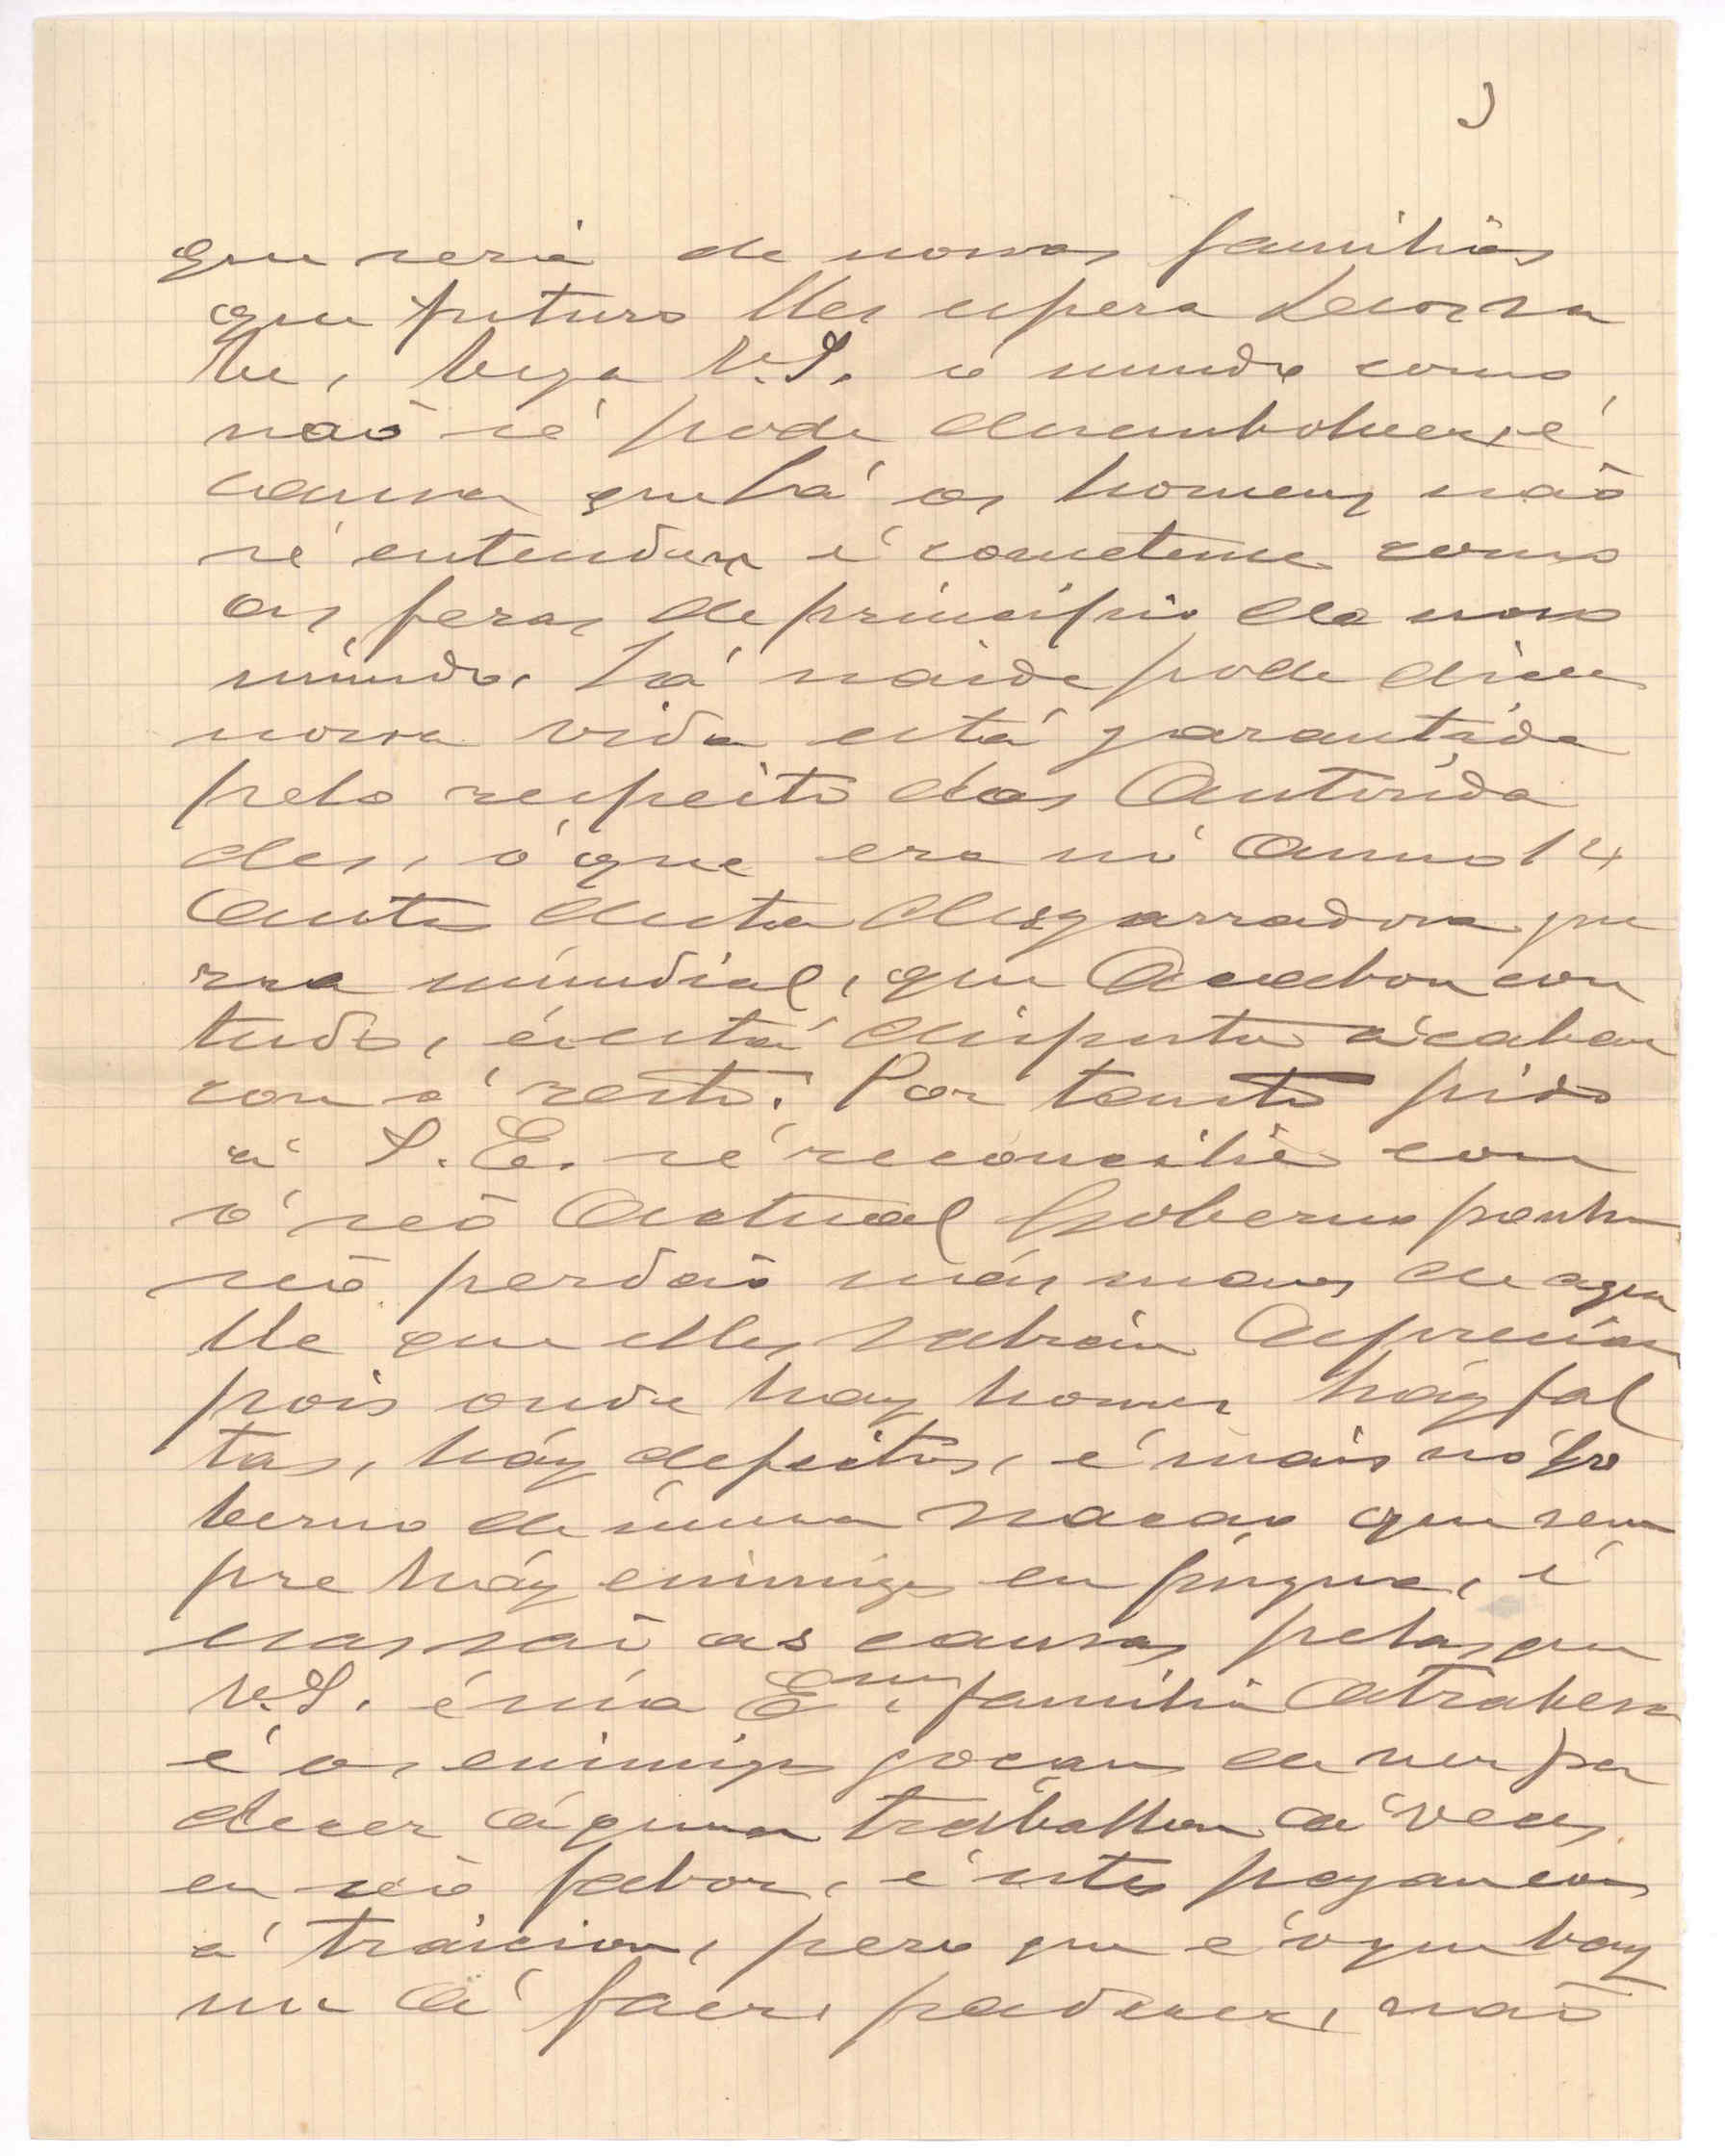 3
que seria de nossas familias
que futuro lles espera Deos sa
be, bega V.S. o mundo como
naõ sé pode desembolverse
causa que lá os homens naõ
sé entenden é cometense como
as feras de principio do novo
mundo. Lá naide pode dicer
nossa vida está garantida
pelo respeito das Autorida
des, ó que era nó Anno 14
Antes desta desgarradora gue
rra mundial, que Acabou con
tudo, é está disposta a'cabar
con o' resto. Por tanto pido
a' S. E. sé reconcilie con
o' seõ Actual Goberno
seõ perdaõ más de aque
lle que elles sabrán Apreciar
pois onde hay homes háy fal
tas, háy defeitos, é mais no' Go
berno de uma nacao que sem
pre háy enimigos en pugna, é
essas saõ as causas pelas que
V.S. é súa Ema. familia Atrabesa
é os enimigos gocan de ver pa
decer álguma trabalhan a' veces
en seõ fabor, é estes pagan con
a' traicion, pero que é o que bay
se a' facer, padecer, naõ